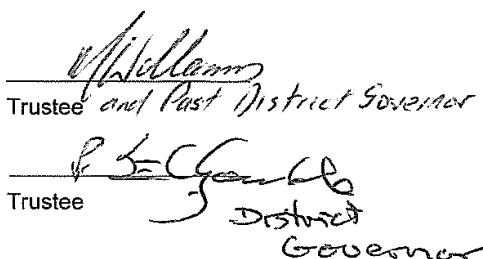 Williams
Trustee and Past District Governor
Trustee
District
Governor